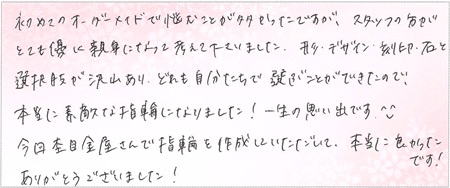 初めてのオーダーメイドで悩むことが多かったですが、スタッフの方が
とても優に親身になって考えて下さいました。形・デザイン・刻印・石と
選択肢が沢山あり、どれも自分たちで選ぶことができたので、
本当に素敵な指輪になりました！一生の思い出です^^
今回杢目金屋さんで指輪を作成していただいて、本当に良かった
です！
ありがとうございました！